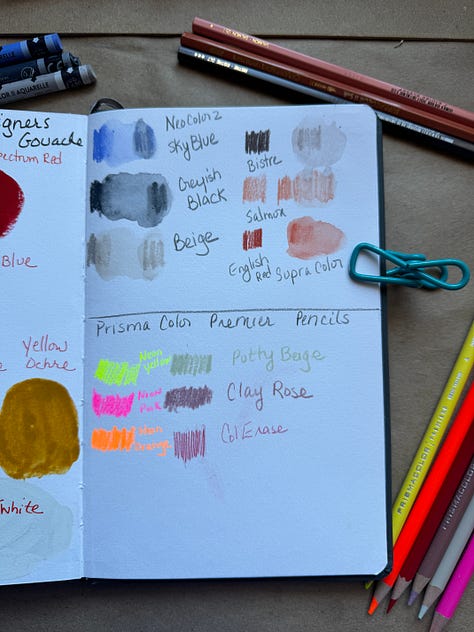 igners
Gouache
pectrum Red
Blue
Yellow
Ochre
White
NeoColor2
Sky Blue
Greyish
Black
Beige
Bistre
Salmon
English
Red
Supra Color
Prisma Color Premier Pencils
Neon
Yellow
Neon
Pink
Neon
Orange
Putty Beige
Clay Rose
Col Erase
AQUARELLE
PRISMACOLOR
PRISMACO